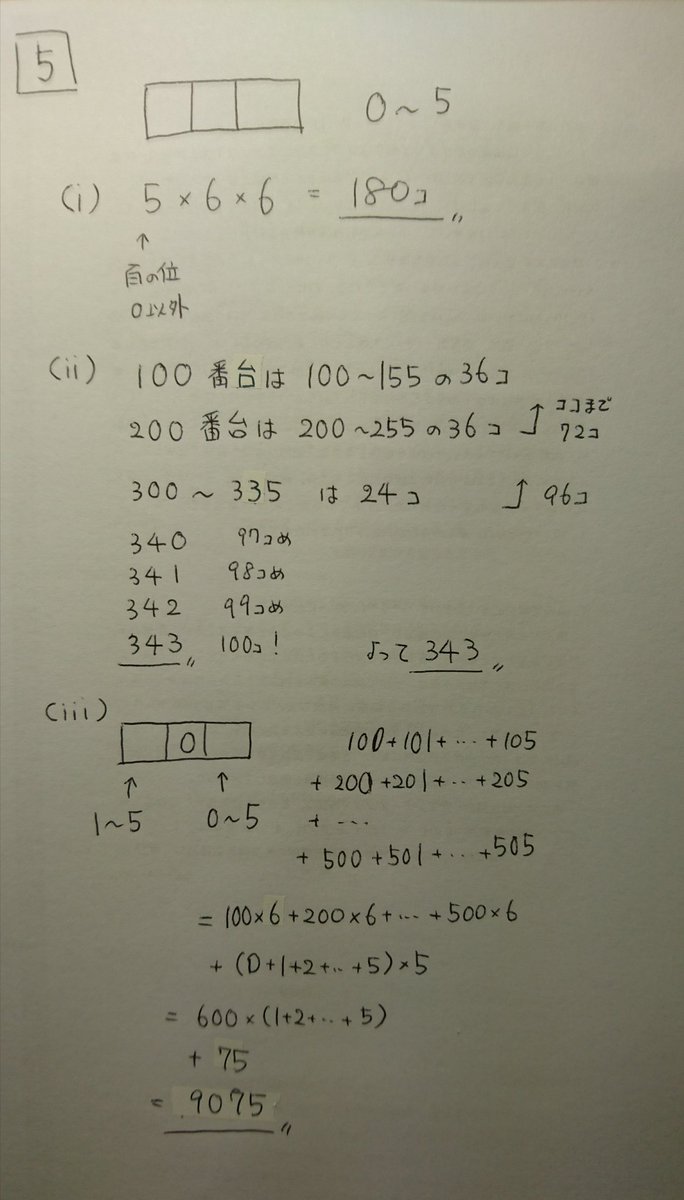 5
0～5
(i) 5×6×6 = 180コ〃
↑
百の位
0以外
(ii) 100番台は 100～155の36コ
200番台は 200～255の36コ ココまで72コ
300～335 は 24コ 96コ
340 97コめ
341 98コめ
342 99コめ
343〃 100コ! よって 343〃
(iii)
0
↑ ↑
1～5 0～5
100+101+…+105
+ 200+201+…+205
+ …
+ 500+501+…+505
= 100×6+200×6+…+500×6
+ (0+1+2+…+5)×5
= 600×(1+2+…+5)
+ 75
= 9075〃